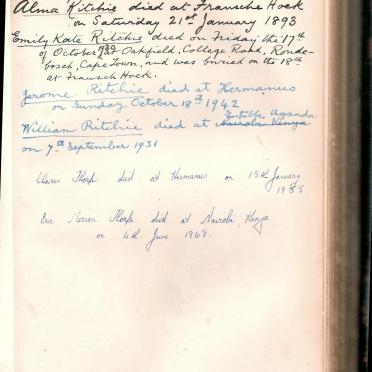 Alma Ritchie died at Fransche Hoek
on Saturday 21st January 1893
Emily Kate Ritchie died on Friday the 17th
of October at Oakfield, College Road, Ronde-
bosch, Cape Town, and was buried on the 18th
at Fransch Hoek.
Jerome Ritchie died at Hermanus
on Sunday October 18th 1942
Entebbe Uganda
William Ritchie died at Nairobi Kenya
on 7th September 1931
Thorp died at Hermanus on 15th January
1985
Eric Thorp died at Nairobi, Kenya
on 4th June 1968.